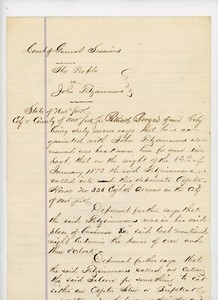 Court of General Sessions
The People
vs
John Fitzsimmons
State of New York
City & County of New York ss Patrick Fogarty of said City
being duly sworn says that he is ac-
quainted with John Fitzsimmons above
named and has known him for some time
And that on the night of the 12th of
January 1872 the said Fitzsimmons
called at this deponents Oyster
House No 336 of New
York
Deponent further says that
the said Fitzsimmons was at his said
place of business on said last mentioned
night between the hours of one and
two o'clock
Deponent further says that
the said Fitzsimmons called on
the said for something to eat
either an Oyster Stew or